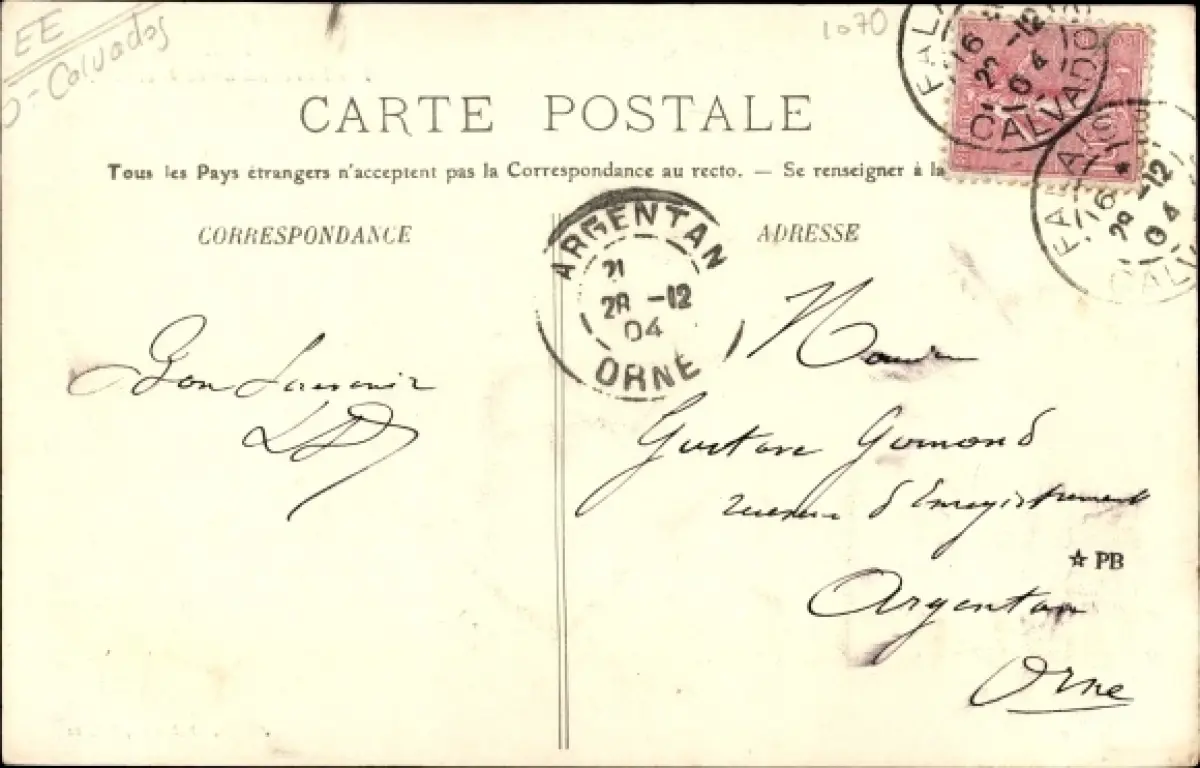 EE
- Calvados
1070
FALAISE
16 28 -12 04
CALVADOS
CARTE POSTALE
Tous les Pays étrangers n'acceptent pas la Correspondance au recto. — Se renseigner à la
CORRESPONDANCE
ARGENTAN
21
28 -12
04
ORNE
ADRESSE
FALAISE
16 28 -12 04
CALVADOS
Bon Souvenir
Gustave Gomond
receveur d'Enregistrement
PB
Argentan
Orne